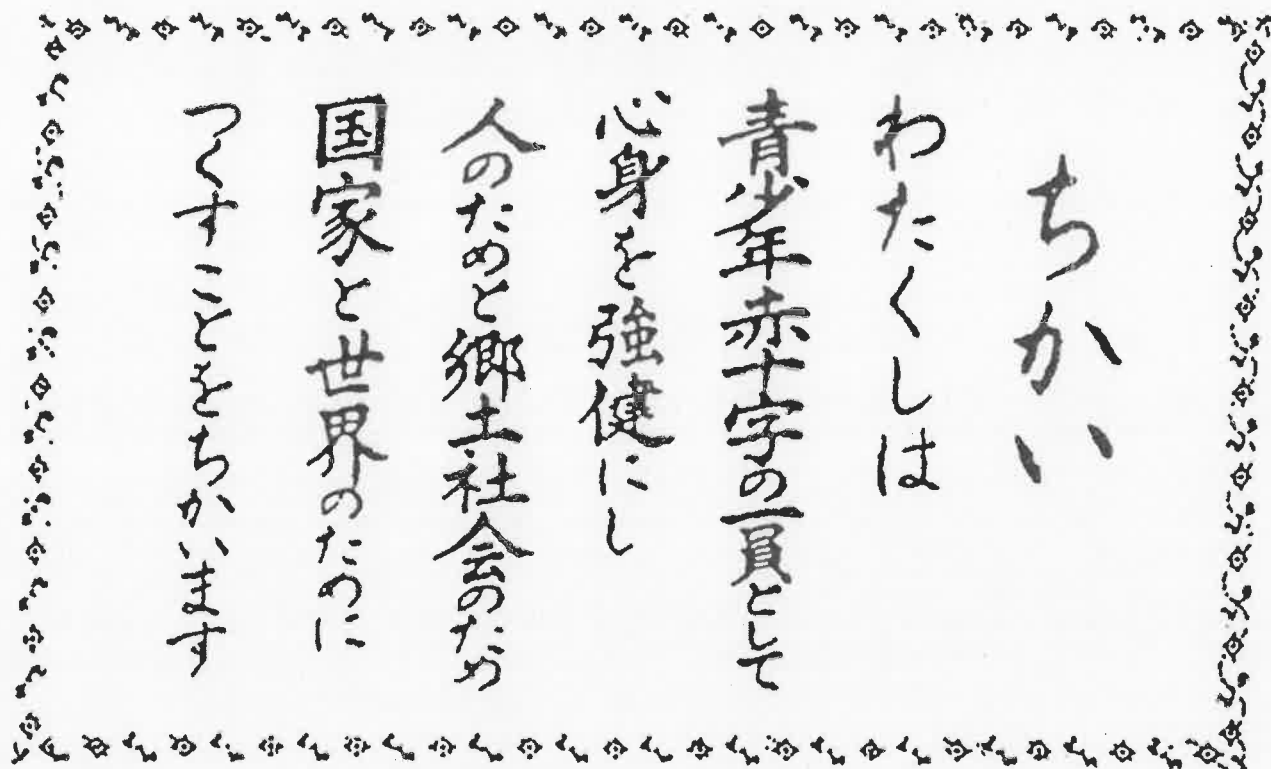 ちかい
わたくしは
青少年赤十字の一員として
心身を強健にし
人のためと郷土社会のため
国家と世界のために
つくすことをちかいます